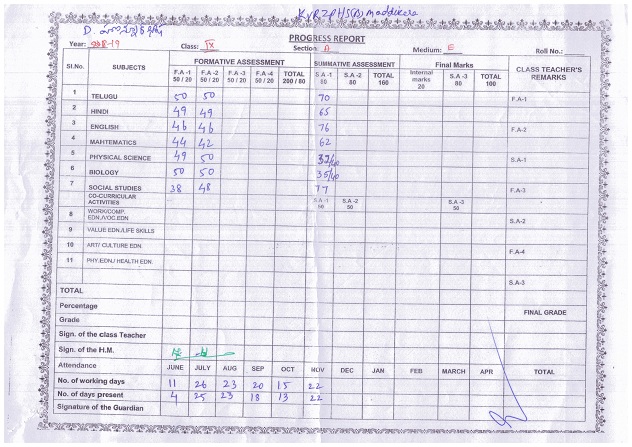 KVRZPHS(G) Maddikera
PROGRESS REPORT
Year: 2018-19 Class: IX Section A Medium: E Roll No.:
Sl.No. SUBJECTS FORMATIVE ASSESSMENT SUMMATIVE ASSESSMENT Final Marks CLASS TEACHER'S REMARKS
F.A -1 50 / 20 F.A -2 50 / 20 F.A -3 50 / 20 F.A -4 50 / 20 TOTAL 200 / 80 S.A -1 80 S.A -2 80 TOTAL 160 Internal marks 20 S.A -3 80 TOTAL 100
1 TELUGU 50 50 70 F.A-1
2 HINDI 49 49 65
3 ENGLISH 46 46 76 F.A-2
4 MAHTEMATICS 44 42 62
5 PHYSICAL SCIENCE 49 50 37/40 S.A-1
6 BIOLOGY 50 50 35/40
7 SOCIAL STUDIES 38 48 77 F.A-3
CO-CURRICULAR ACTIVITIES S.A -1 50 S.A -2 50 S.A -3 50
8 WORK/COMP. EDN./VOC.EDN S.A-2
9 VALUE EDN./LIFE SKILLS
10 ART/ CULTURE EDN F.A-4
11 PHY.EDN./ HEALTH EDN.
S.A-3
TOTAL
Percentage FINAL GRADE
Grade
Sign. of the class Teacher
Sign. of the H.M.
Attendance JUNE JULY AUG SEP OCT NOV DEC JAN FEB MARCH APR TOTAL
No. of working days 11 26 23 20 15 22
No. of days present 4 25 23 18 13 22
Signature of the Guardian